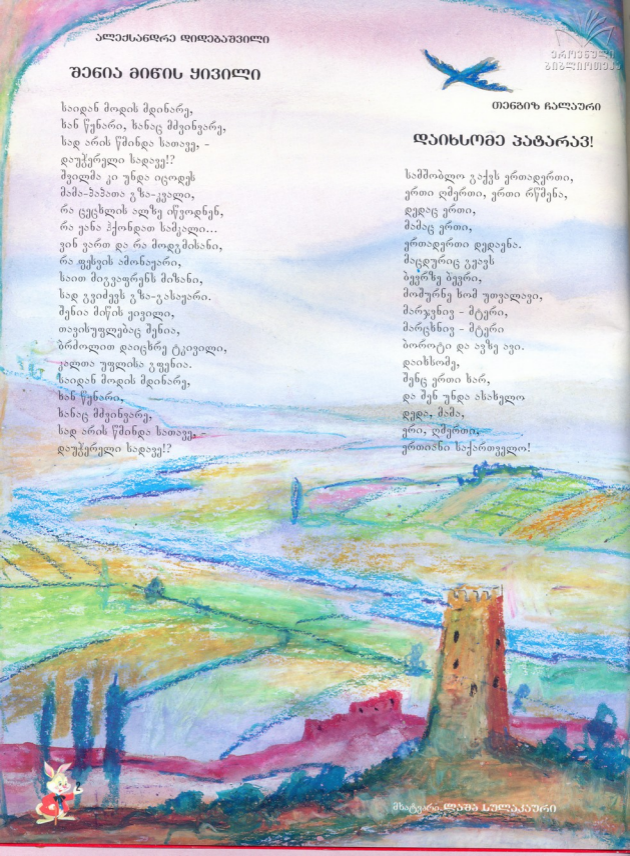 ალექსანდრე დიდებაშვილი
შენია მიწის ყივილი
საიდან მოდის მდინარე,
ხან წყნარი, ხანაც მძვინვარე,
სად არის წმინდა სათავე, -
დაუჭერელი სადავე!?
შვილმა კი უნდა იცოდეს
მამა-პაპათა გზა-კვალი,
რა ცეცხლის ალზე იწვოდნენ,
რა ყანა ჰქონდათ სამკალი...
ვინ ვართ და რა მოდგმისანი,
რა ფესვის ამონაყარი,
საით მიგვაფრენს მიზანი,
სად გვიძევს გზა-გასაყარი.
შენია მიწის ყივილი,
თავისუფლებაც შენია,
ბრძოლით დაიცხრე ტკივილი,
კალთა უფლისა გფენია.
საიდან მოდის მდინარე,
ხან წყნარი,
ხანაც მძვინვარე,
სად არის წმინდა სათავე, -
დაუჭერელი სადავე!?
ეროვნული
ბიბლიოთეკა
თენგიზ ჩალაური
დაიხსომე პატარავ!
სამშობლო გაქვს ერთადერთი,
ერთი ღმერთი, ერთი რწმენა,
დედაც ერთი,
მამაც ერთი,
ერთადერთი დედაენა.
მაცდურიც გყავს
ბევრზე ბევრი,
მოშურნე ხომ უთვალავი,
მარჯვნივ - მტერი,
მარცხნივ - მტერი
ბოროტი და ავზე ავი.
დაიხსომე,
შენც ერთი ხარ,
და შენ უნდა ასახელო
დედა, მამა,
ერი, ღმერთი,
ერთიანი საქართველო!
მხატვარი ლაშა სულაკაური